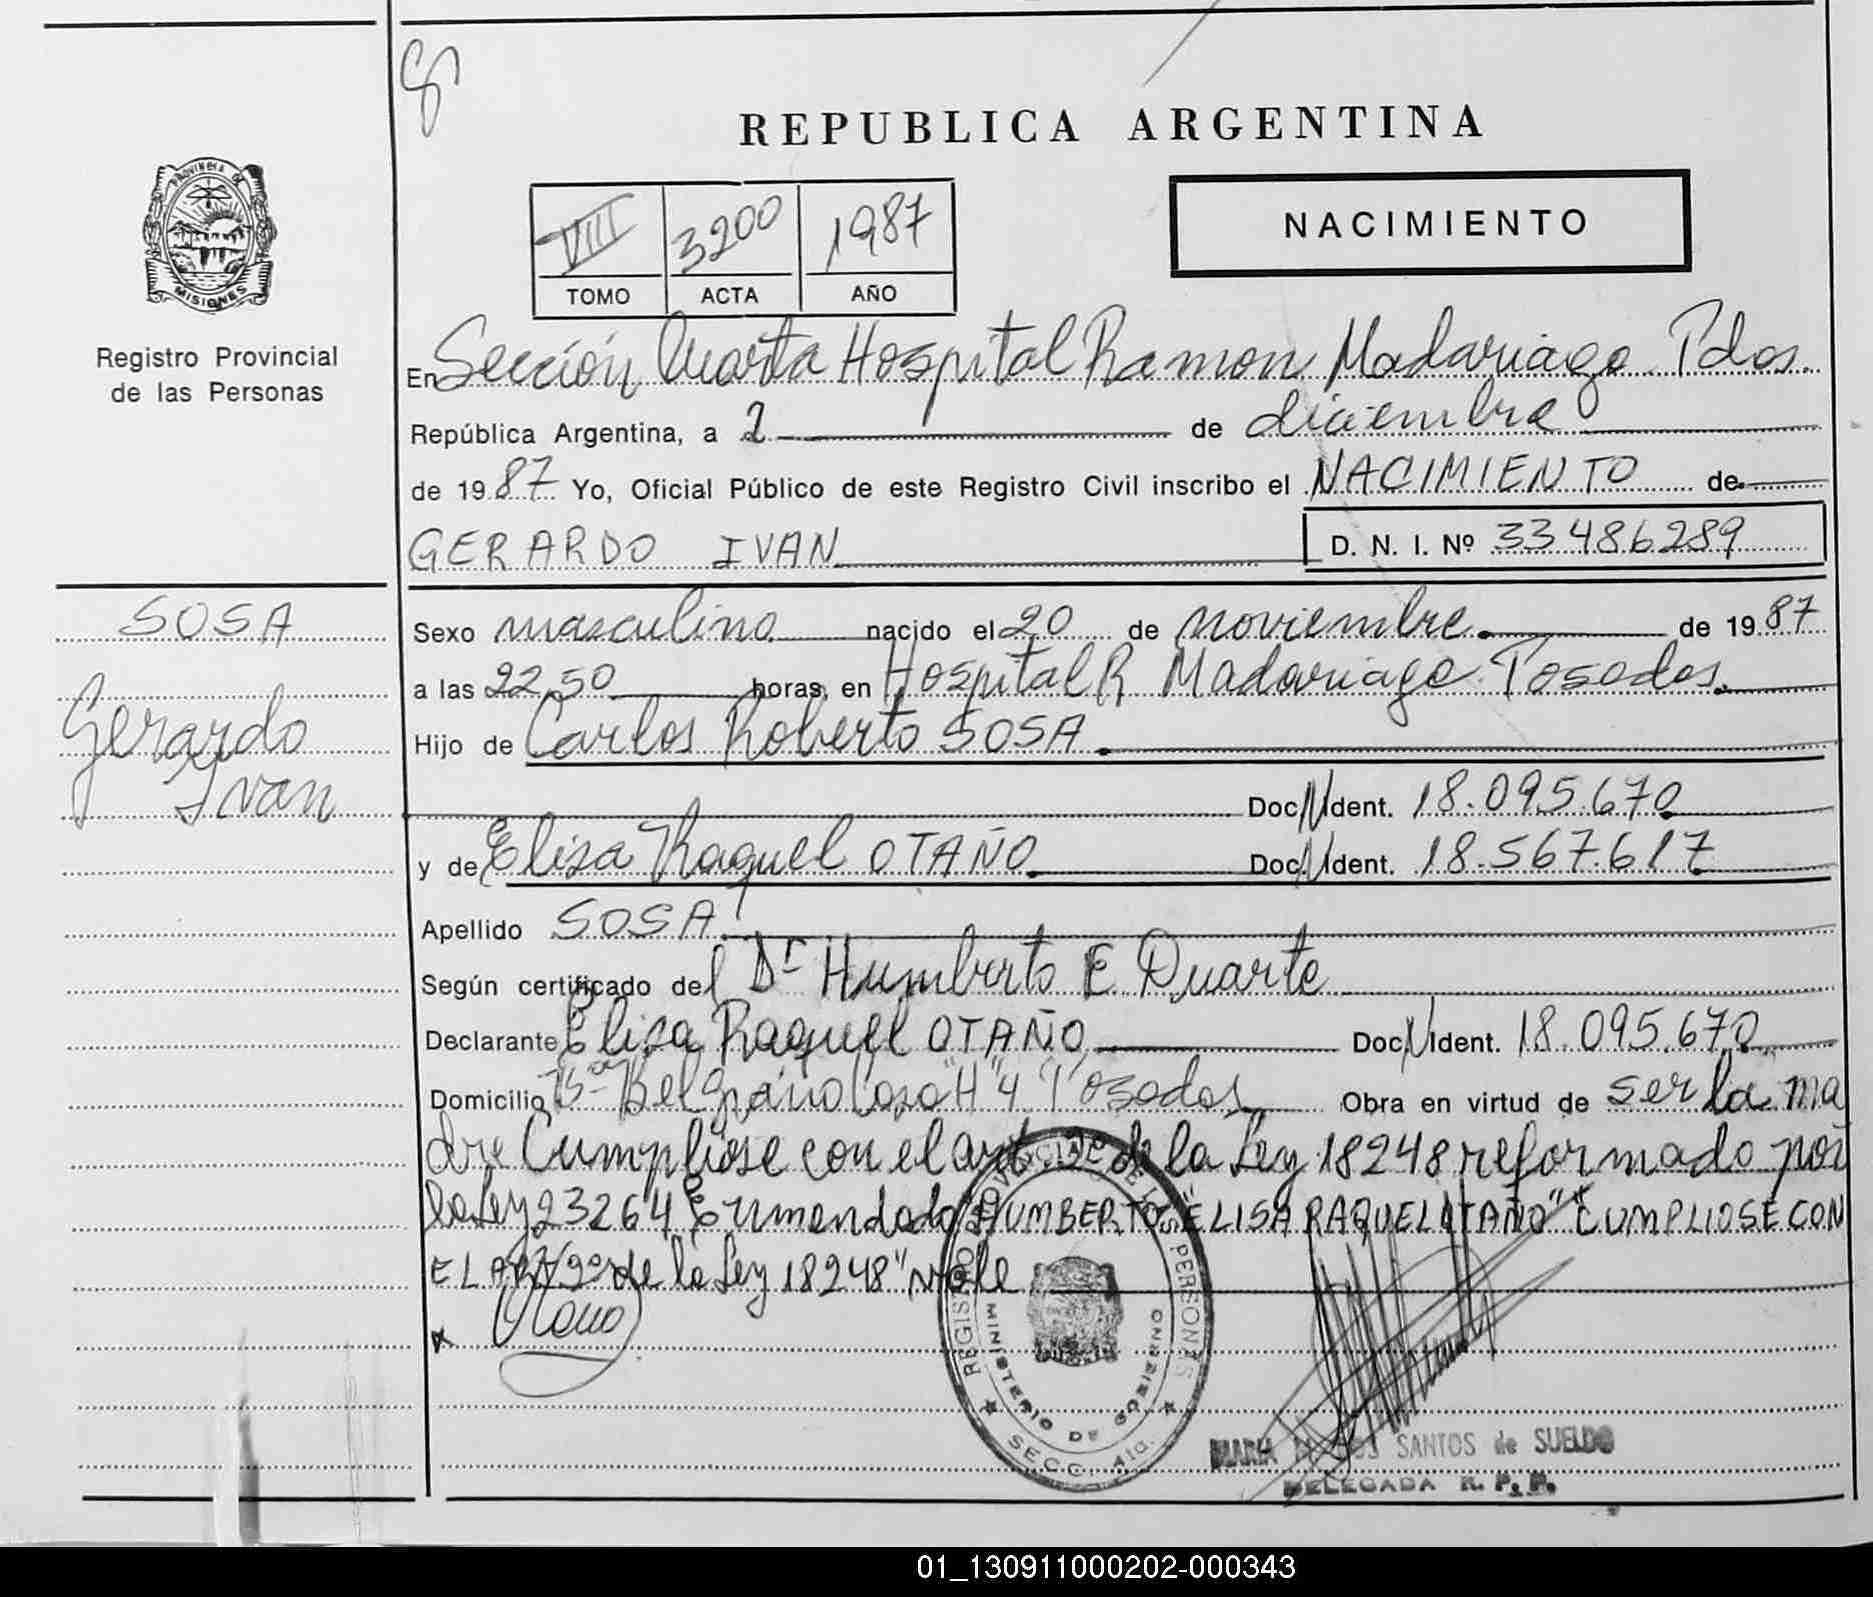 REPUBLICA ARGENTINA
PROVINCIA DE
MISIONES
Registro Provincial
de las Personas
VIII 3200 1987
TOMO ACTA AÑO
NACIMIENTO
En Sección Cuarta Hospital Ramon Madariaga Pdos.
República Argentina, a 2 de diciembre
de 1987 Yo, Oficial Público de este Registro Civil inscribo el NACIMIENTO de
GERARDO IVAN D. N. I. Nº 33486289
SOSA
Gerardo
Ivan
Sexo masculino nacido el 20 de noviembre de 1987
a las 22,50 horas, en Hospital R Madariaga Posadas.
Hijo de Carlos Roberto SOSA.
Doc. N Ident. 18.095.670
y de Elisa Raquel OTAÑO. Doc. N Ident. 18.567.617
Apellido SOSA
Según certificado del Dr Humberto E Duarte
Declarante Elisa Raquel OTAÑO Doc. N Ident. 18.095.670
Domicilio Bº Belgrano Casa "H" 4 Posadas Obra en virtud de ser la ma
dre Cumpliose con el art. 2º de la Ley 18248 reformado por
la Ley 23264 Enmendado "HUMBERTO" "ELISA RAQUEL OTAÑO" "CUMPLIOSE CON
EL ART 2º de la Ley 18248" Vale
REGISTRO PROVINCIAL DE LAS PERSONAS
MINISTERIO DE GOBIERNO
SECC. 4ta.
MARIA SANTOS de SUELDO
DELEGADA R. P. P.
01_130911000202-000343